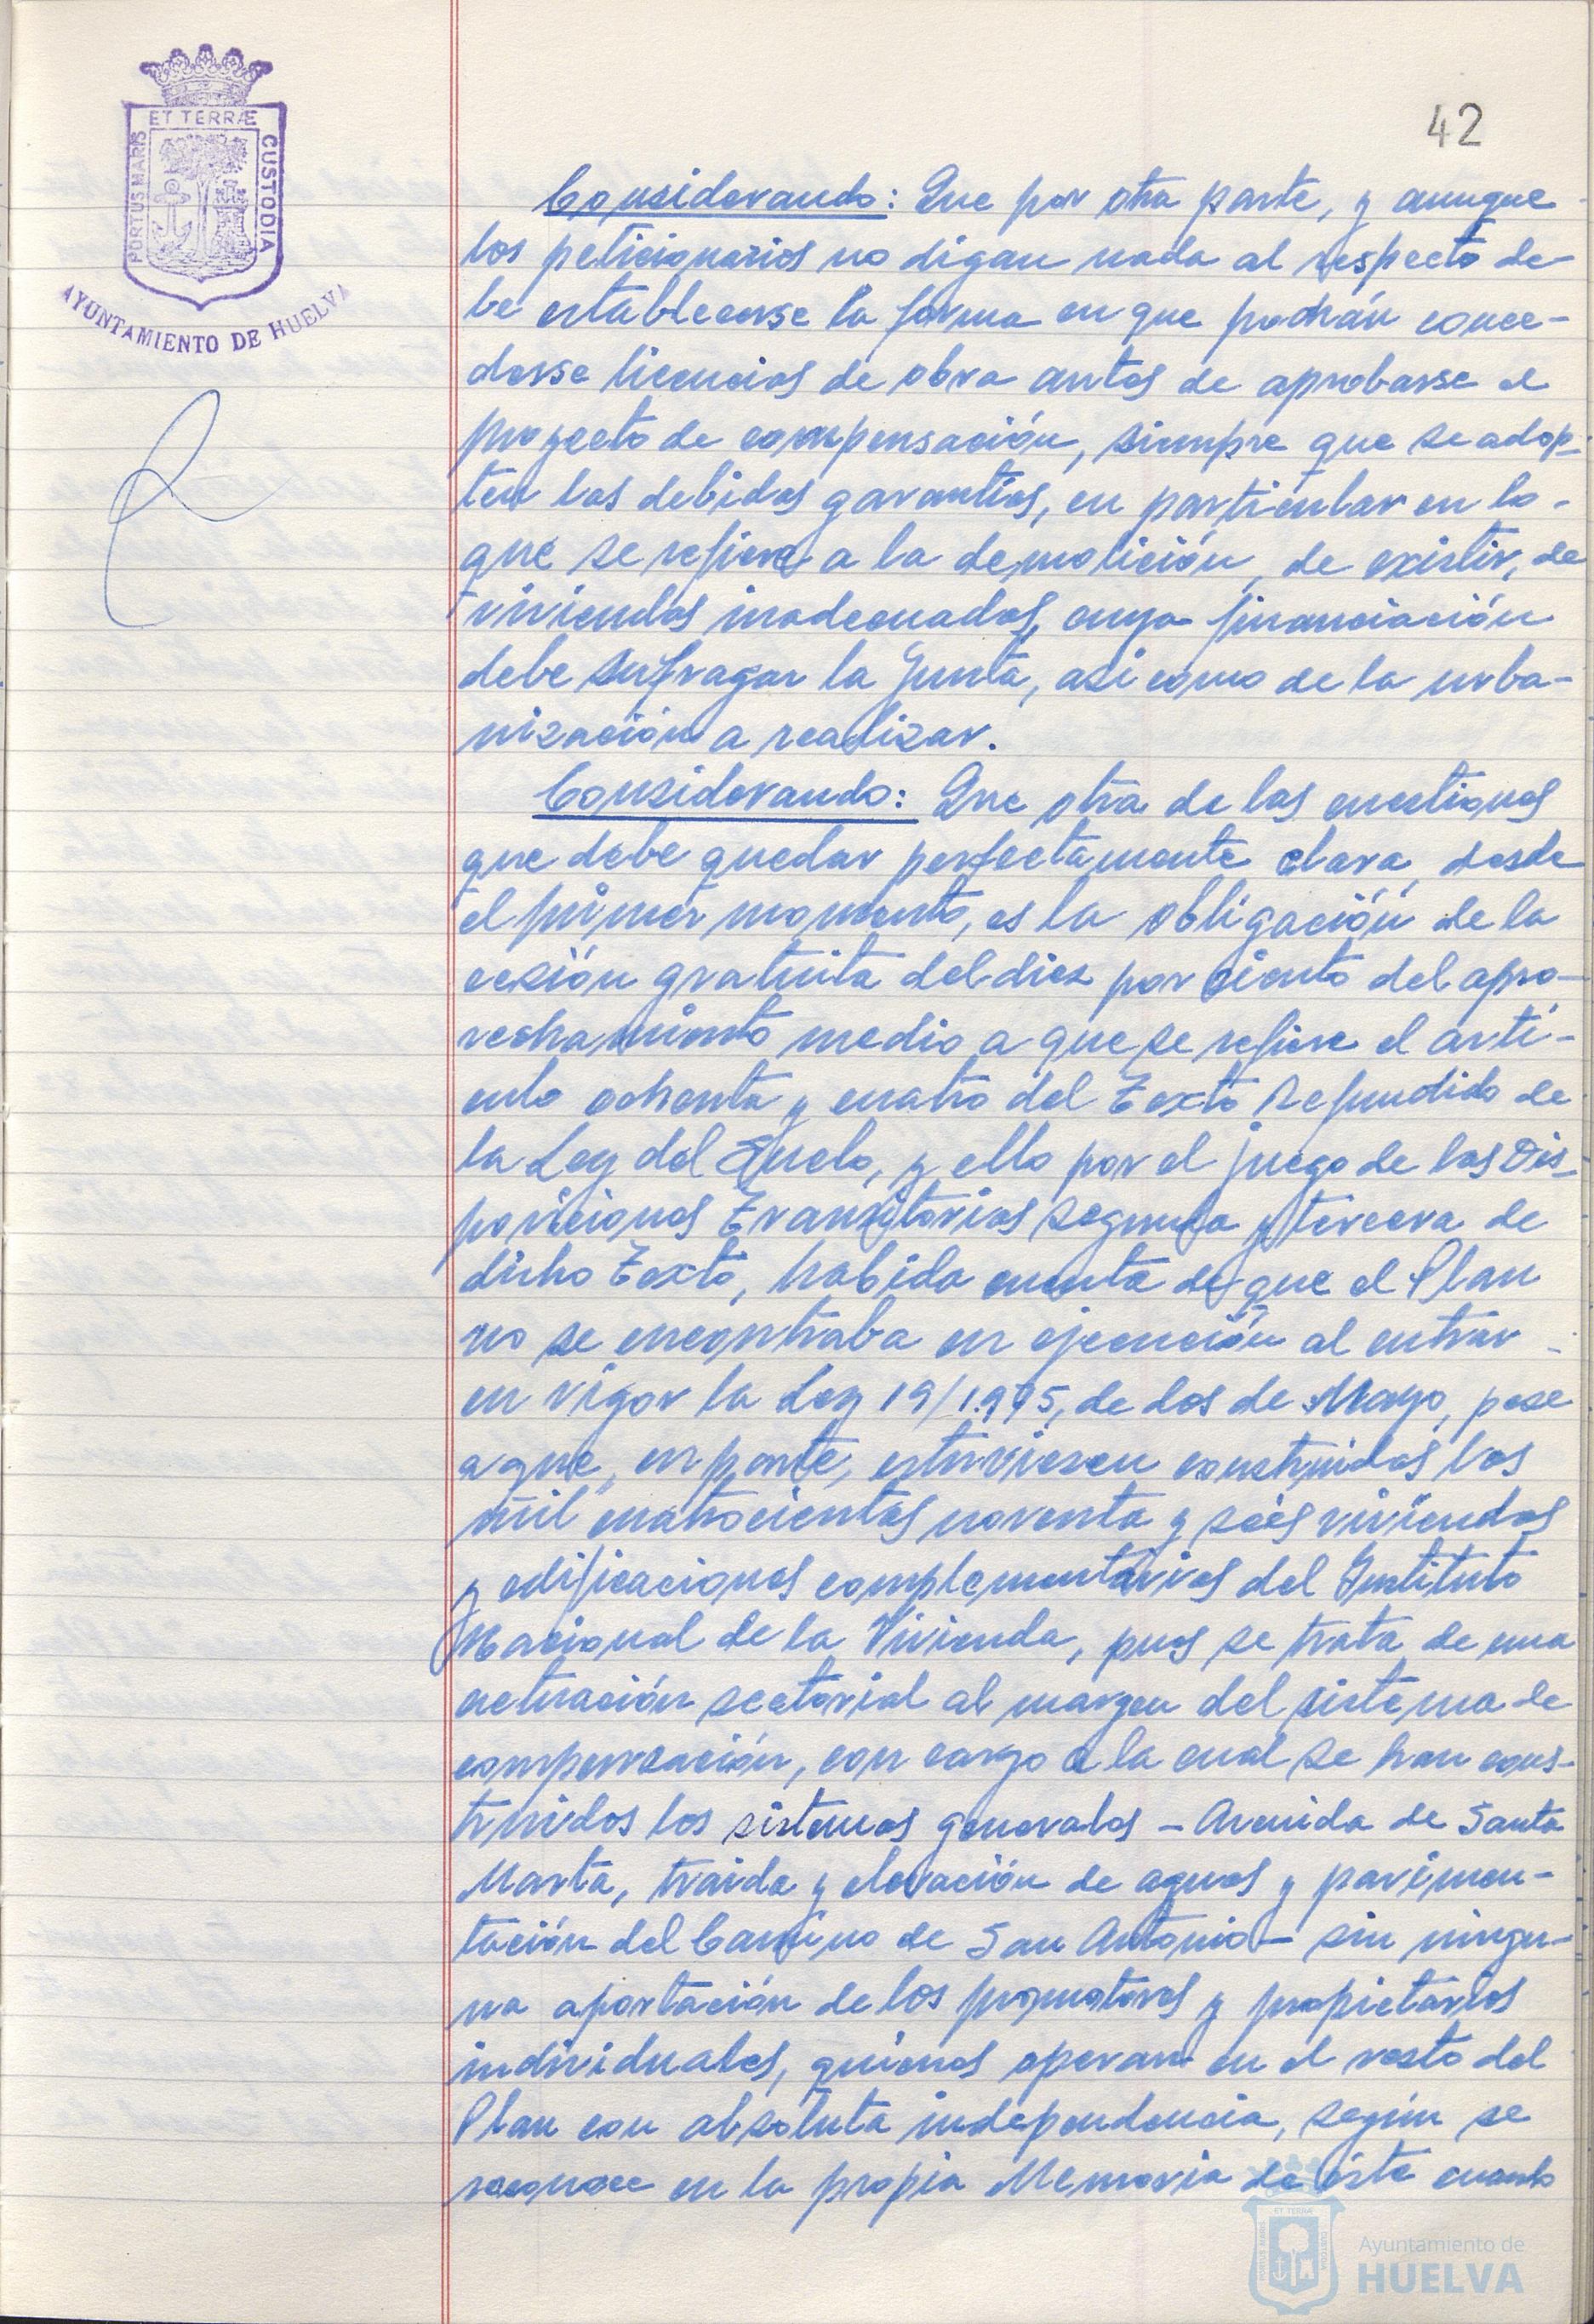 42
ET TERRÆ
PORTUS MARIS
CUSTODIA
AYUNTAMIENTO DE HUELVA
Considerando: Que por otra parte, y aunque
los peticionarios no digan nada al respecto de-
be establecerse la forma en que podrán conce-
derse licencias de obra antes de aprobarse el
proyecto de compensación, siempre que se adop-
ten las debidas garantías, en particular en lo-
que se refiere a la demolición, de existir, de
viviendas inadecuadas, cuya financiación
debe sufragar la Junta, asi como de la urba-
nización a realizar.
Considerando: Que otra de las cuestiones
que debe quedar perfectamente clara, desde
el primer momento, es la obligación de la
cesión gratuita del diez por ciento del apro-
vechamiento medio a que se refiere el artí-
culo ochenta y cuatro del Texto Refundido de
la Ley del Suelo, y ello por el juego de las Dis-
posiciones Transitorias segunda y tercera de
dicho Texto, habida cuenta de que el Plan
no se encontraba en ejecución al entrar
en vigor la Ley 19/1.975, de dos de Mayo, pese
a que, en parte, estuviesen construidas las
mil cuatrocientas noventa y seis viviendas
y edificaciones complementarias del Instituto
Nacional de la Vivienda, pues se trata de una
actuación sectorial al margen del sistema de
compensación, con cargo a la cual se han cons-
truidos los sistemas generales - Avenida de Santa
Marta, traida y elevación de aguas y pavimen-
tación del Camino de San Antonio - sin ningu-
na aportación de los promotores y propietarios
individuales, quienes operan en el resto del
Plan con absoluta independencia, según se
reconoce en la propia Memoria de éste cuando
Ayuntamiento de
HUELVA